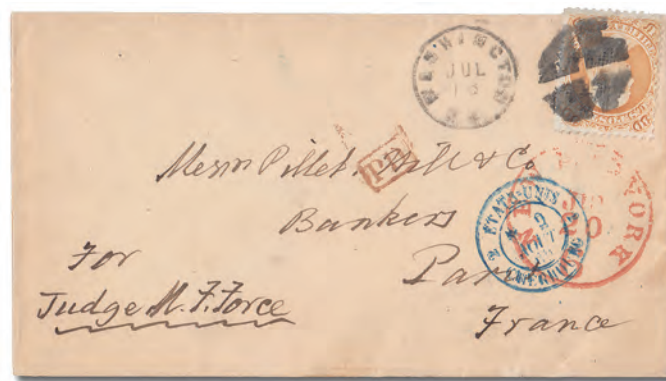 WASHINGTON
JUL
PD
Messrs Pillet, Will & Co
Bankers
Paris
France
For
Judge M. F. Force
ETATS-UNIS
2 2
AOUT
CHERBOURG
NEW YORK